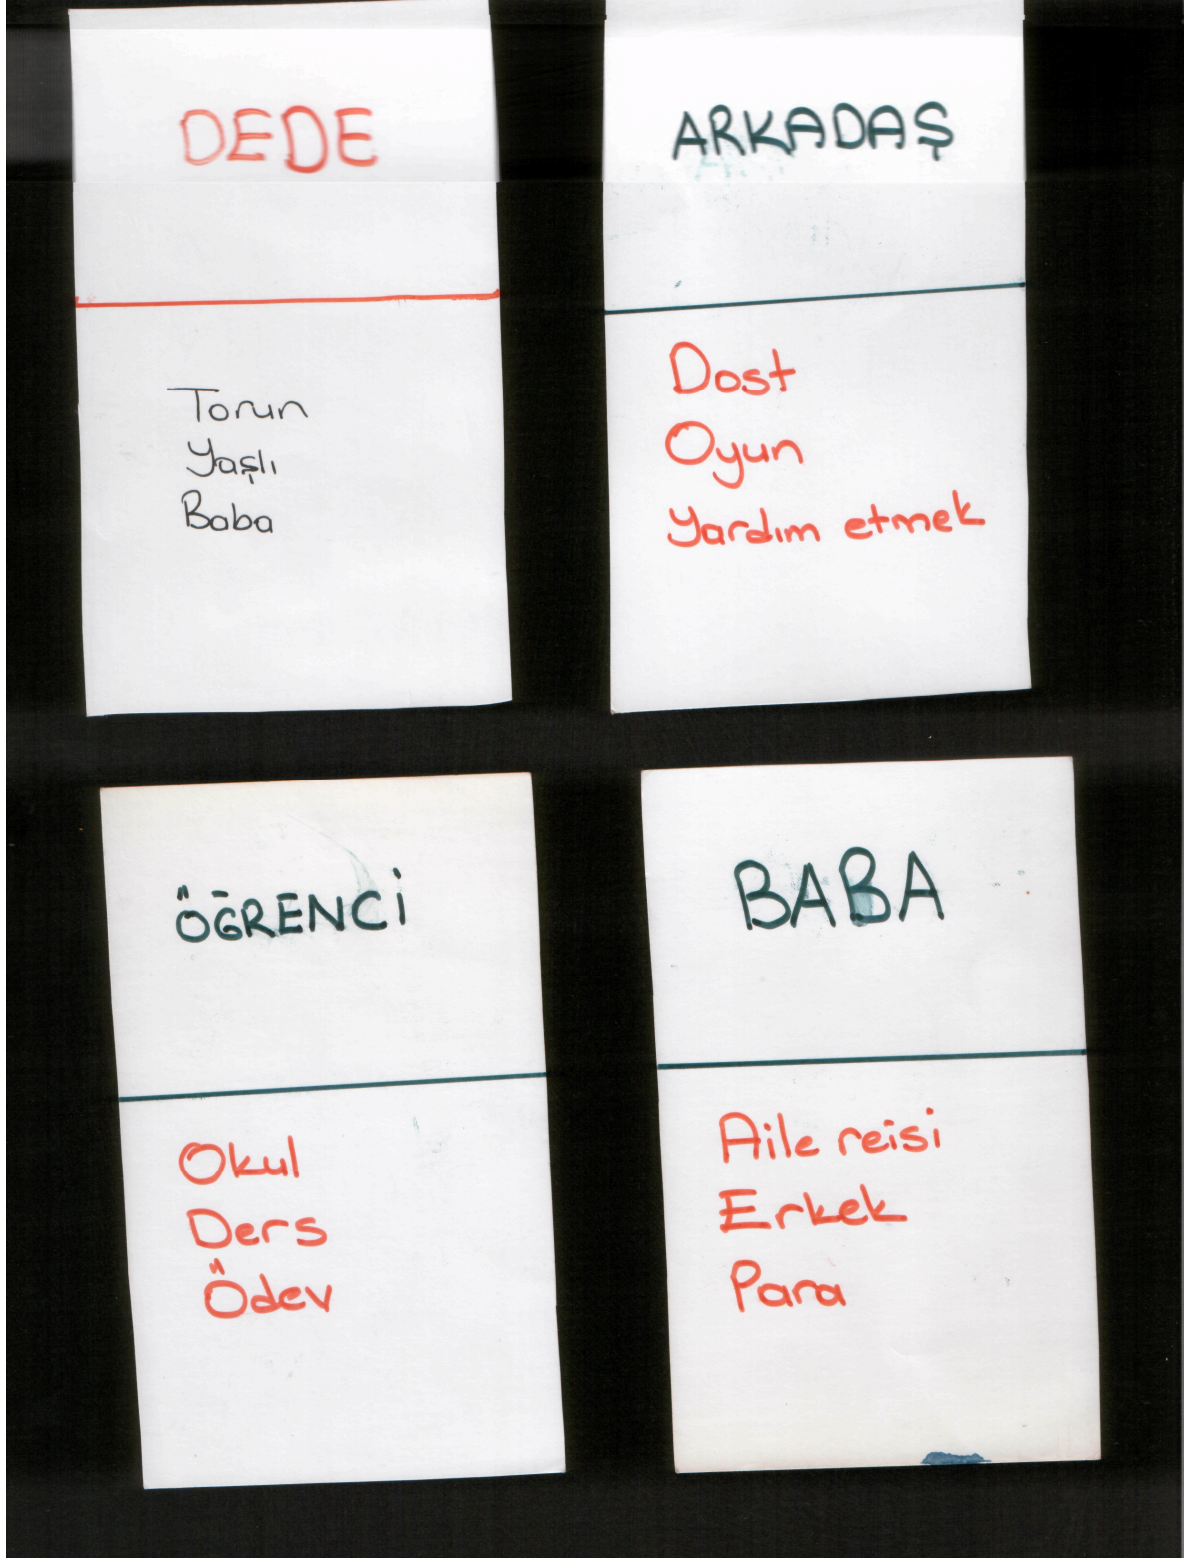 DEDE
Torun
Yaşlı
Baba
ARKADAŞ
Dost
Oyun
Yardım etmek
ÖĞRENCİ
Okul
Ders
Ödev
BABA
Aile reisi
Erkek
Para